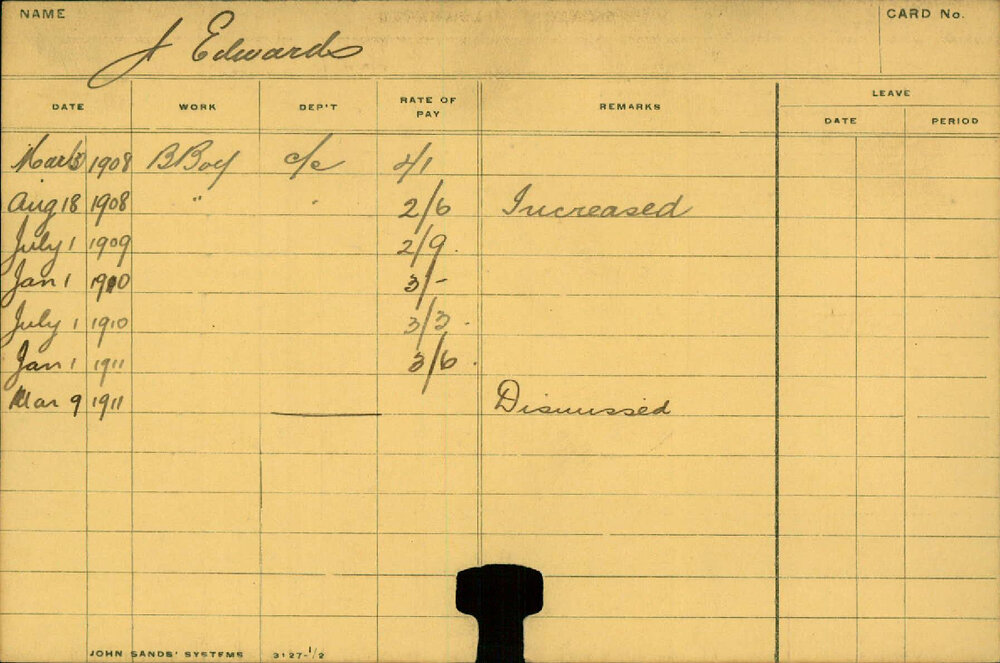 NAME
CARD No.
J Edwards
DATE WORK DEP'T RATE OF PAY REMARKS LEAVE
DATE PERIOD
Mar 3 1908 B Boy c/e
Aug 18 1908 " " 2/6 Increased
July 1 1909 2/9
Jan 1 1910 3/-
July 1 1910 3/3
Jan 1 1911 3/6
Mar 9 1911 Dismissed
JOHN SANDS' SYSTEMS 3127-1/2